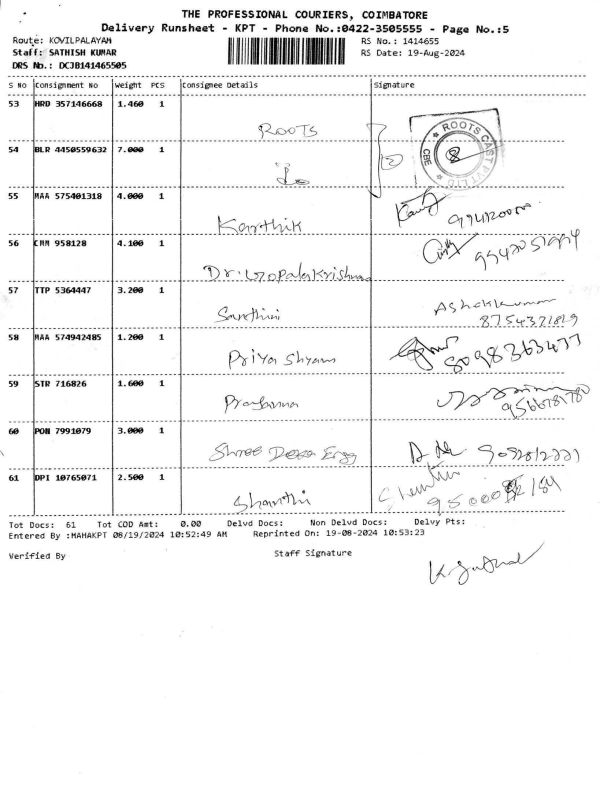 THE PROFESSIONAL COURIERS, COIMBATORE
Delivery Runsheet - KPT - Phone No.:0422-3505555 - Page No.:5
Route: KOVILPALAYAM RS No.: 1414655
Staff: SATHISH KUMAR RS Date: 19-Aug-2024
DRS No.: DCJB141465505
S No Consignment No Weight PCS Consignee Details Signature
53 HRD 357146668 1.460 1
ROOTS
ROOTS CAST PVT LTD CBE
54 BLR 4450559632 7.000 1
55 MAA 575401318 4.000 1
Karthik
56 CMM 958128 4.100 1
Dr. Gopala Krishnan
57 TTP 5364447 3.200 1
Santhini Ashokkumar
8754321829
58 MAA 574942485 1.200 1
Priya Shyam 8098363477
59 STR 716826 1.600 1
9566781780
60 PON 7991079 3.000 1
Shree Deera Engg
61 DPI 10765071 2.500 1
Shanthi
Tot Docs: 61 Tot COD Amt: 0.00 Delvd Docs: Non Delvd Docs: Delvy Pts:
Entered By :MAHAKPT 08/19/2024 10:52:49 AM Reprinted On: 19-08-2024 10:53:23
Verified By Staff Signature